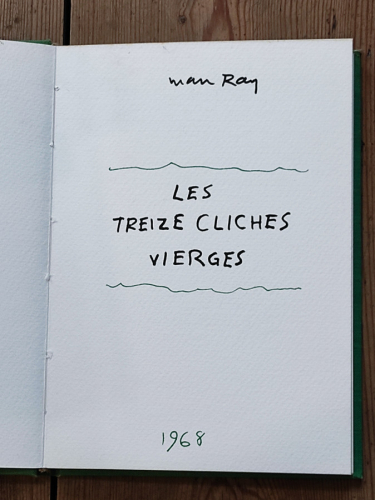 man Ray
LES
TREIZE CLICHES
VIERGES
1968